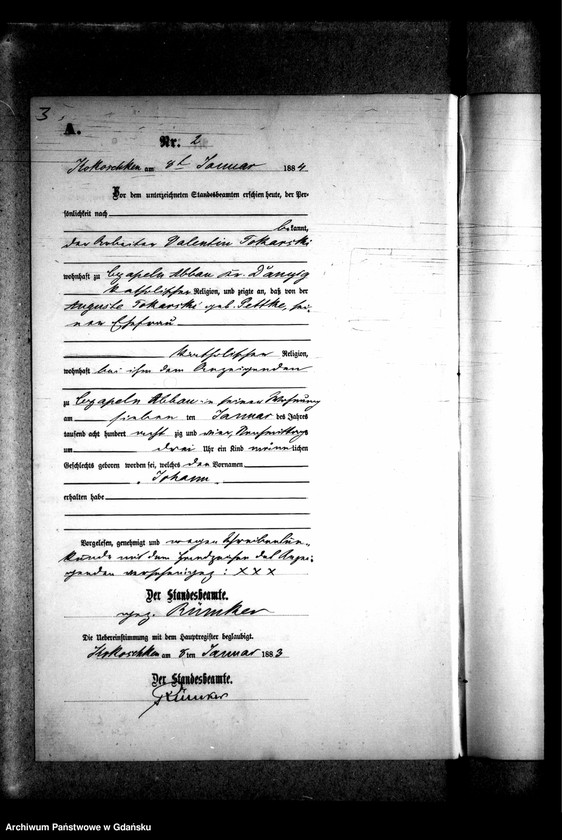 3
A.
Nr. 2
Kokoschken am 8t Januar 1884
Vor dem unterzeichneten Standesbeamten erschien heute, der Per-
sönlichkeit nach
bekannt,
der Arbeiter Valentin Tokarski
wohnhaft zu Czapeln Abbau Kr. Danzig
katholischer Religion, und zeigte an, daß von der
Auguste Tokarski geb. Pettke, sei-
ner Ehefrau
katholischer Religion,
wohnhaft bei ihm dem Anzeigenden
zu Czapeln Abbau in seiner Wohnung
am sieben ten Januar des Jahres
tausend acht hundert acht zig und vier, Nachmittags
um drei Uhr ein Kind männlichen
Geschlechts geboren worden sei, welches den Vornamen
Johann
erhalten habe
Vorgelesen, genehmigt und wegen Schreibensun-
kunde mit dem Handzeichen des Anzei-
genden versehen gez: X X X
Der Standesbeamte.
gez. Rümker
Die Uebereinstimmung mit dem Hauptregister beglaubigt.
Kokoschken am 8 ten Januar 1883
Der Standesbeamte.
Rümker
Archiwum Państwowe w Gdańsku